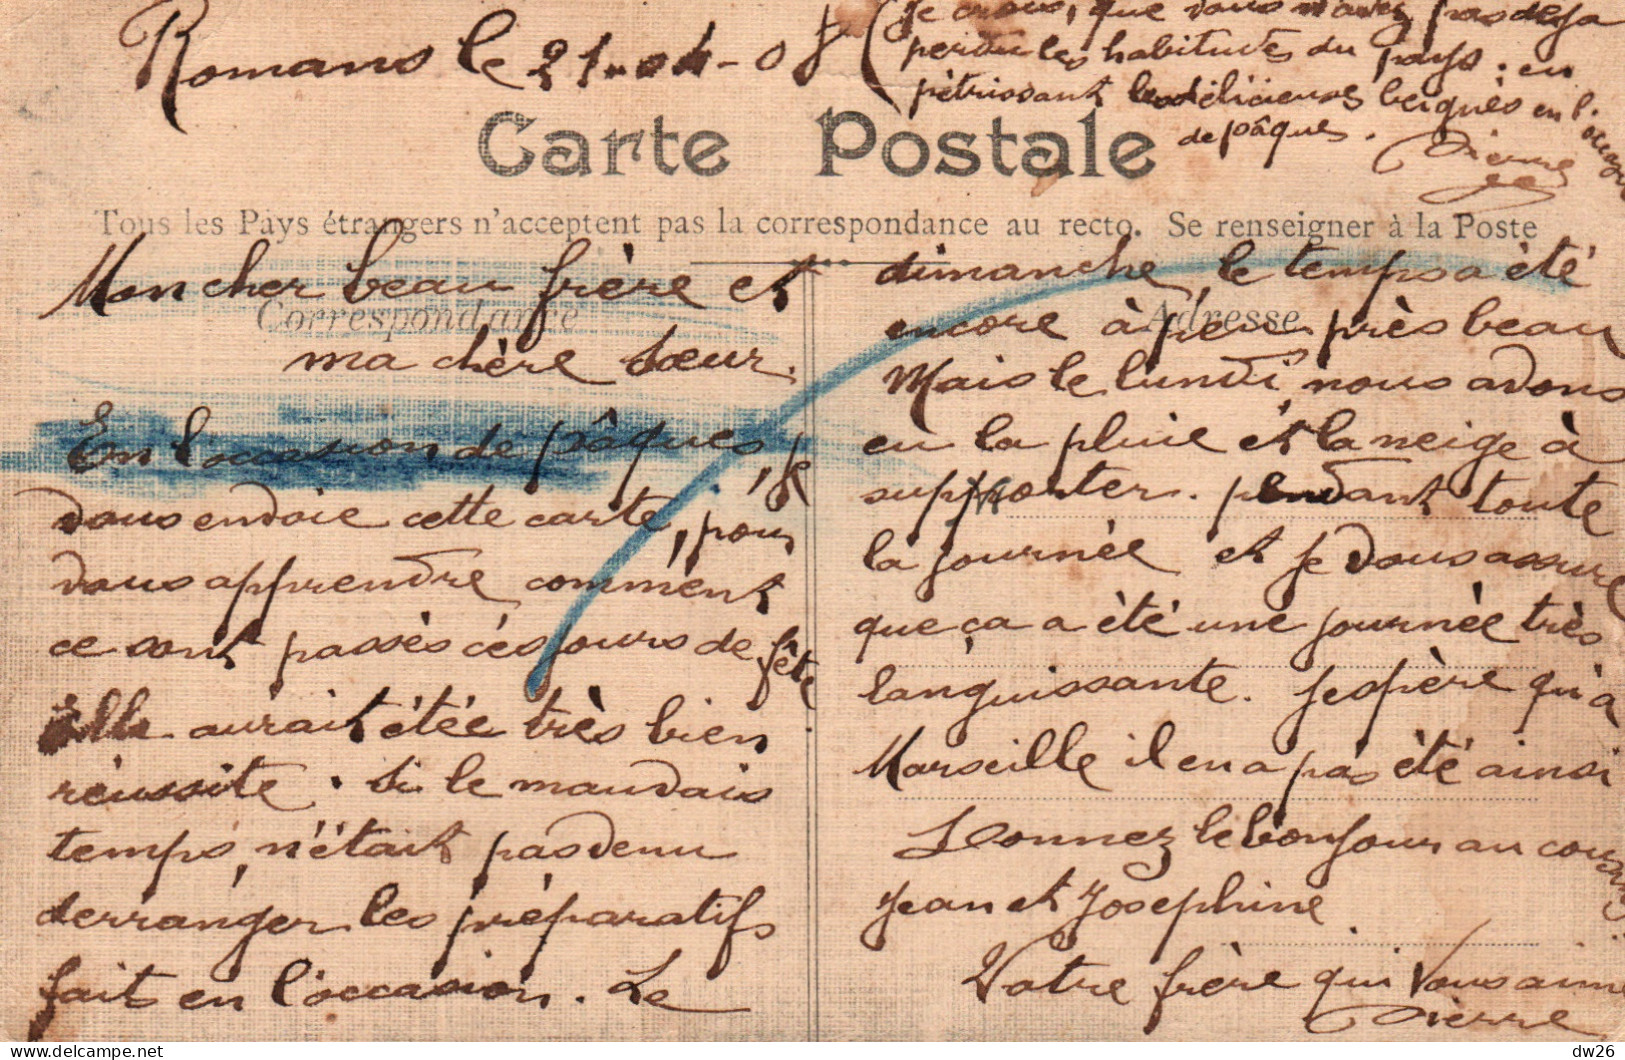 Romans le 21-04-08
(je crois, que vous n'avez pas deja
perdu les habitudes du pays. en
pétrissant les délicieuses beignès en l'occasion
de pâques.
Pierre
Carte Postale
Tous les Pays étrangers n'acceptent pas la correspondance au recto. Se renseigner à la Poste
Correspondance
Mon cher beau frère et
ma chère sœur.
En l'occasion de pâques, je
vous envoie cette carte, pour
vous apprendre comment
ce sont passès cès jours de fête
Elle aurait étée très bien
réussite. Si le mauvais
temps, n'était pas venu
derranger les préparatifs
fait en l'occasion. Le
Adresse
dimanche, le temps a été
encore à peu près beau
Mais le lundi, nous avons
eu la pluie et la neige à
supporter. pendant toute
la journée et je vous assure
que ça a été une journée très
languissante. J'espère qu'à
Marseille il en a pas été ainsi
Donnez le bonjour au cousin
Jean et Josephine
Votre frère qui vous aime
Pierre
dw26